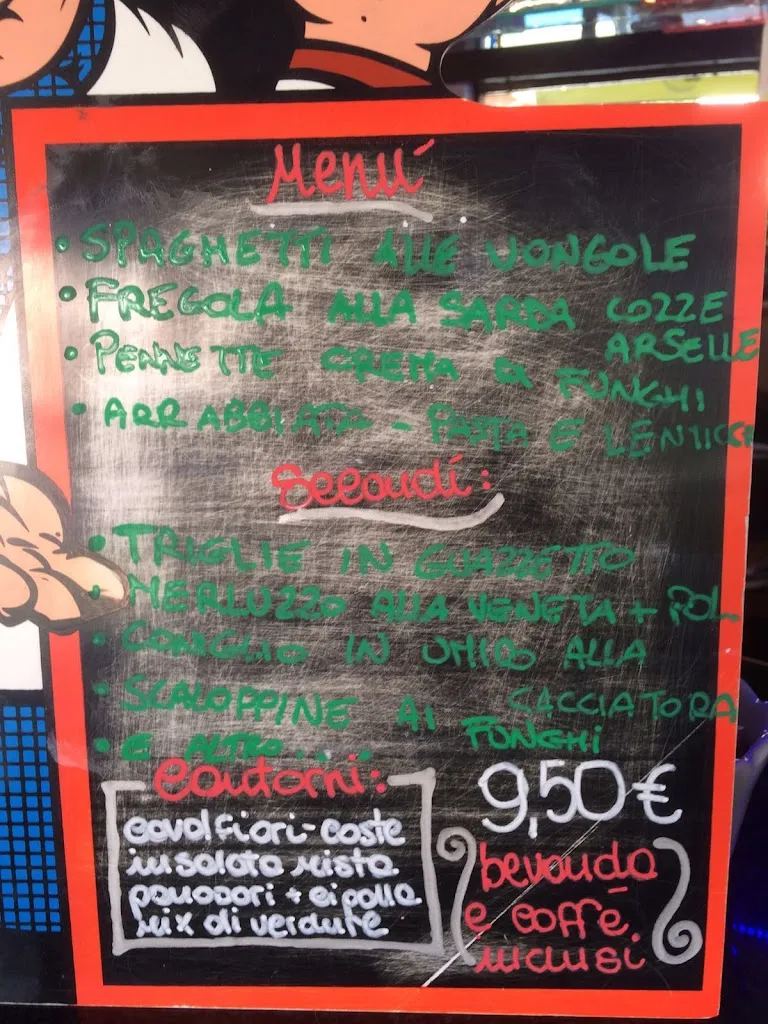 Menú
• SPAGHETTI ALLE VONGOLE
• FREGOLA ALLA SARDA COZZE
ARSELLE
• PENNETTE CREMA DI FUNGHI
• ARRABBIATA - PASTA E LENTICCH
Secondi:
• TRIGLIE IN GUAZZETTO
• MERLUZZO ALLA VENETA + POL.
• CONIGLIO IN UMIDO ALLA
CACCIATORA
• SCALOPPINE AI FUNGHI
• E ALTRO....
Contorni:
cavolfiori-coste
insalata mista
pomodori + cipolla
mix di verdure
9,50€
bevanda
e caffè
inclusi